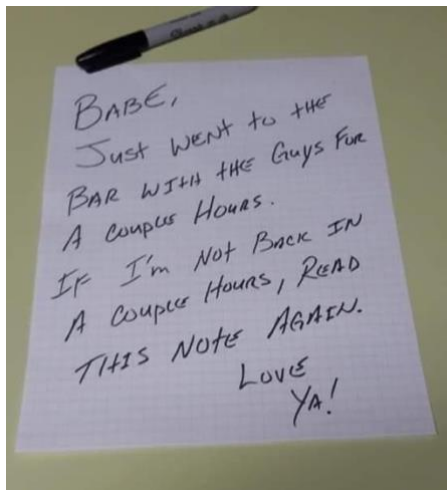 BABE,
JUST WENT to tHE
BAR WITH tHE GUYS FOR
A COUPLE HOURS.
IF I'm NOt BACK IN
A COUPLE HOURS, READ
THIS NOtE AGAIN.
LOVE
YA!